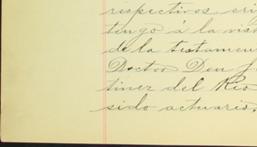 respectivos, ori
tengo á la vis
de la testamen
Doctor Don J.
tinez del Rio
sido actuario,